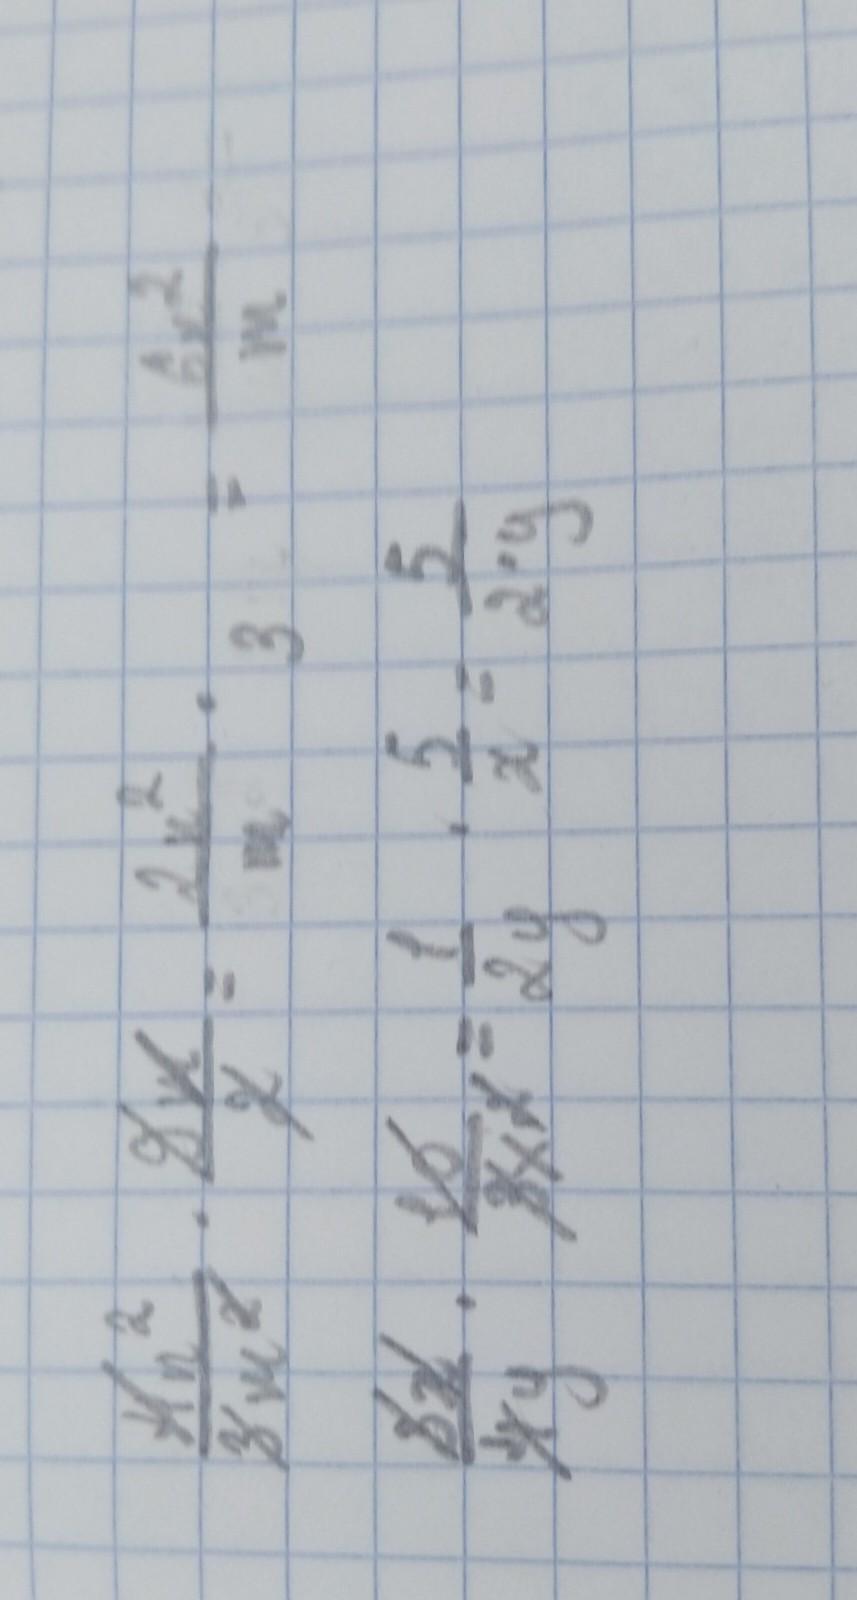 4n²/3m² · 9m/2 = 2n²/m · 3 = 6n²/m
3x/4y · 10/3x² = 1/2y · 5/x = 5/2·y